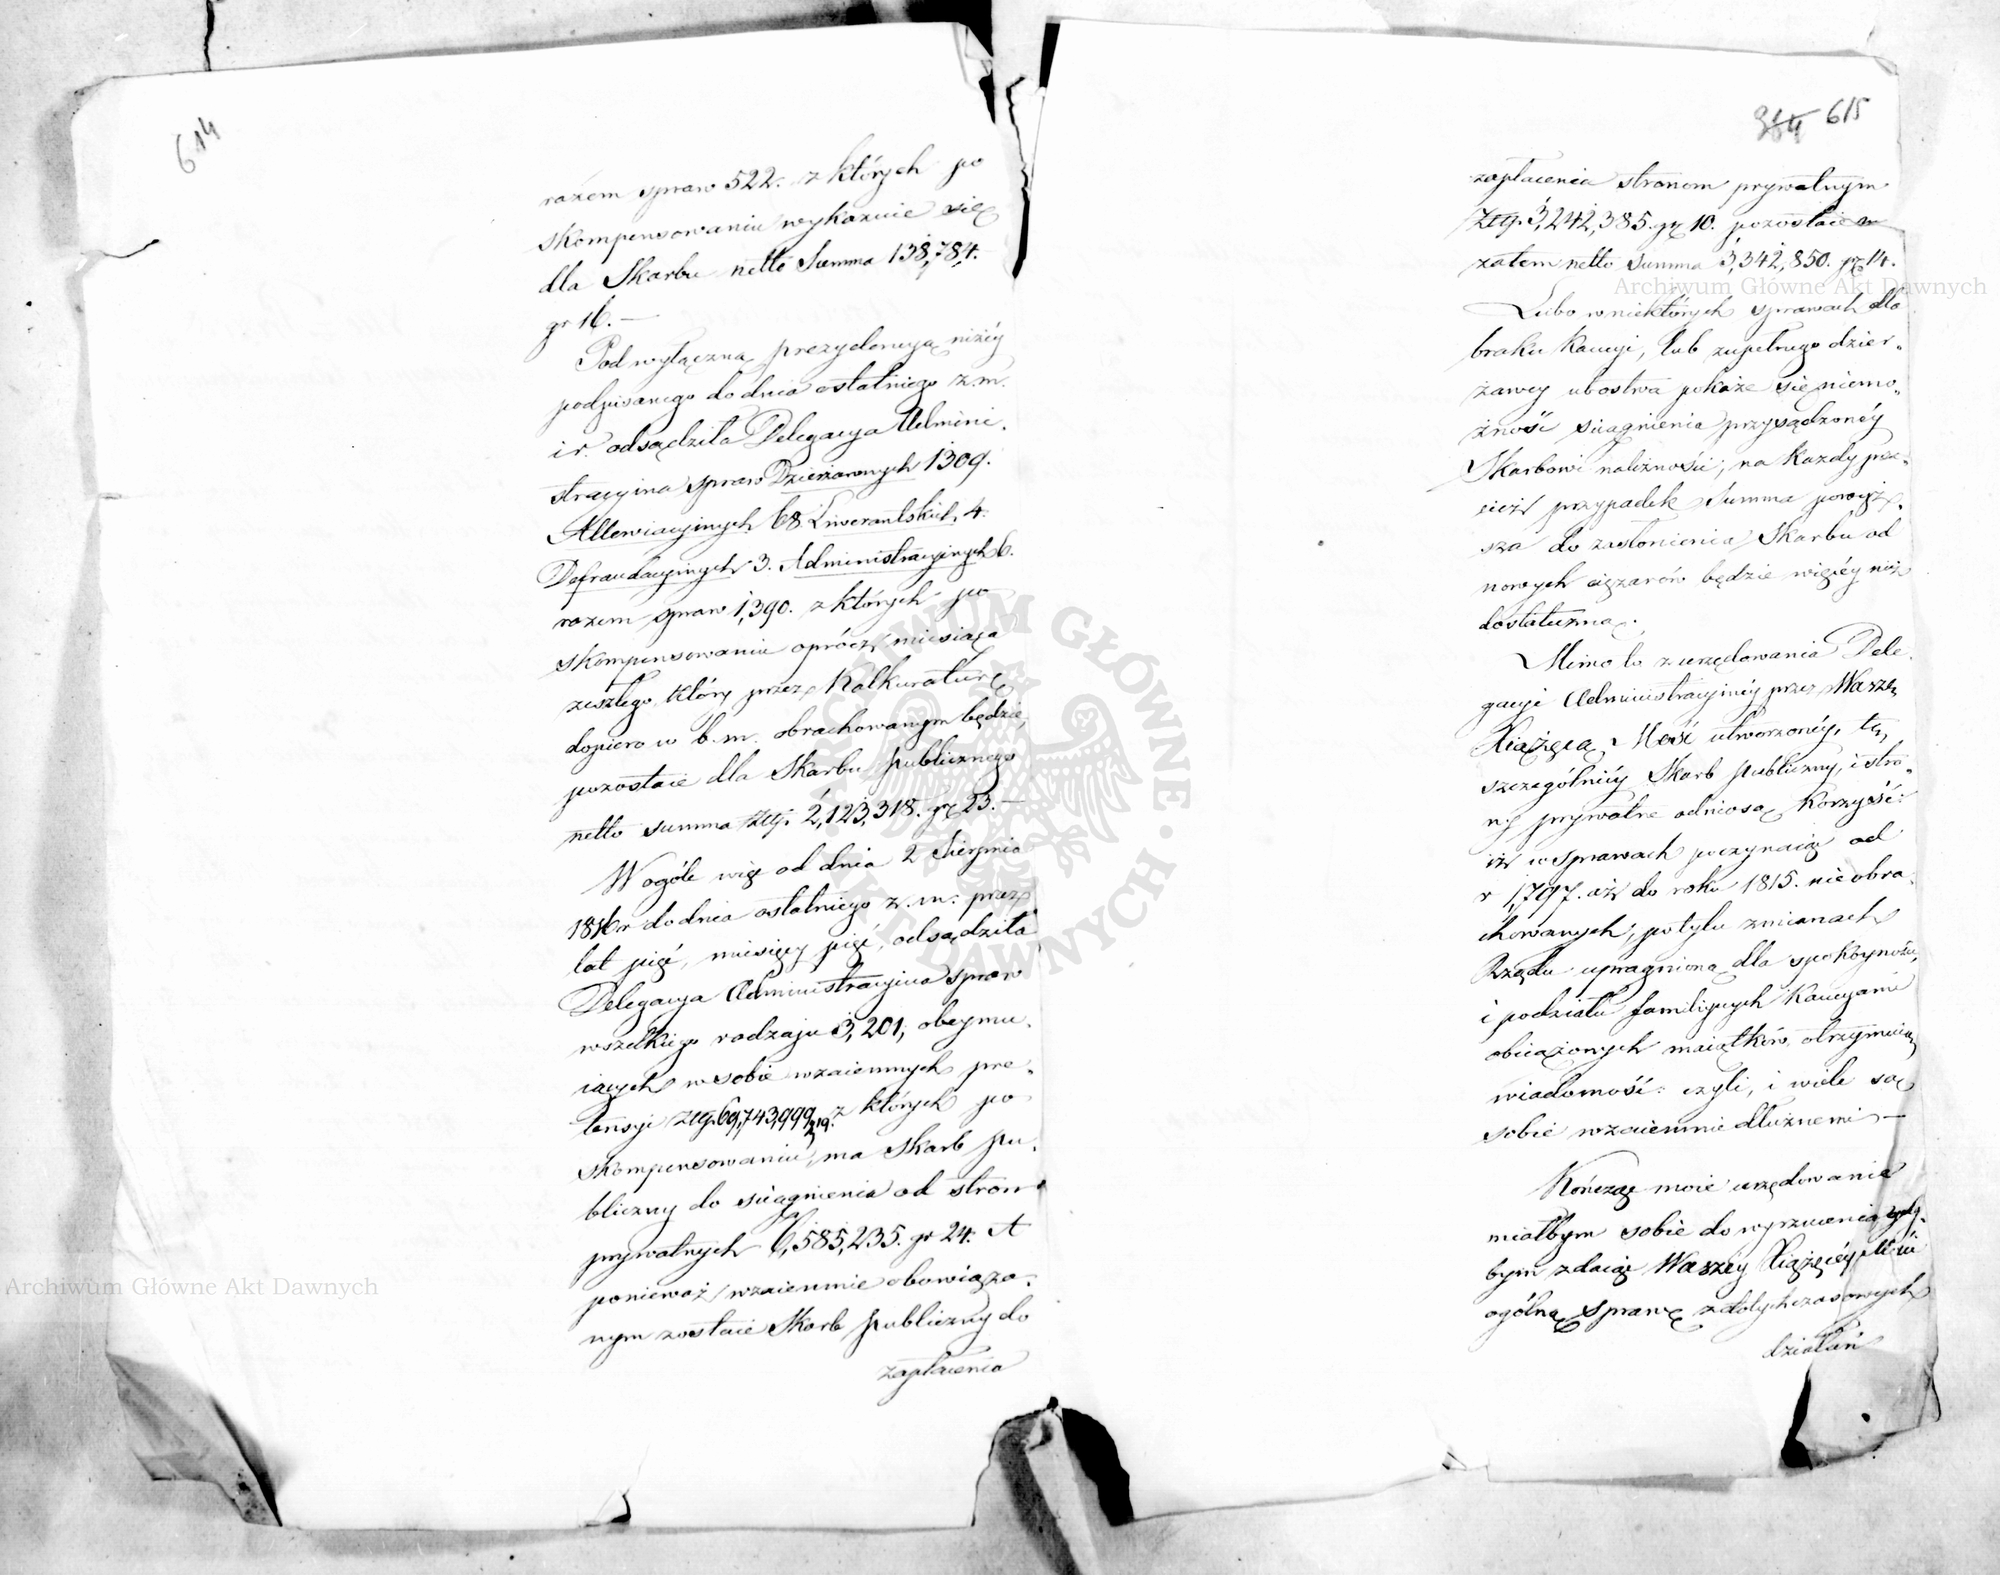 614
razem spraw 522. z których po
skompensowaniu wykazuie się
dla Skarbu netto Summa 138,784.
gr 16. —
Pod wyłączną prezydencyą niżéy
podpisanego do dnia ostatniego z. m.
i r. odsądziła Delegacya Admini„
stracyina spraw Dzierżawnych 1309.
Allewiacyinych 68. Liwerantskich 4.
Defraudacyinych 3. Administracyinych 6.
razem spraw 1,390. z których po
skompensowaniu oprócz miesiąca
zeszłego który przez Kalkuraturę
dopiero w b. m. obrachowanym będzie,
pozostaie dla Skarbu publicznego
netto summa złtp. 2,123,318. gr 23. —
W ogóle więc od dnia 2 Sierpnia
1816 r do dnia ostatniego z. m. przez
lat pięć, miesięcy pięć, odsądziła
Delegacya Administracyina spraw
wszelkiego rodzaju 3,201, obeymu„
iących w sobie wzaiemnych pre„
tensyi złtp. 69,743,999 z których po
skompensowaniu, ma Skarb pu„
bliczny do siągnienia od stron
prywatnych 6,585,235. gr 24. A
ponieważ wzaiemnie obowiąza„
nym zostaie Skarb publiczny do
zapłacenia
384 615
zapłacenia stronom prywatnym
złtp. 3,242,385. gr 10. pozostaie
zatem netto summa 3,342,850. gr 14.
Lubo w niektórych sprawach dla
braku Kaucyi, lub zupełnego dzier„
żawcy ubostwa pokaże się niemo„
żność siągnienia przysądzonéy
Skarbowi należności; na każdy prze„
cież przypadek Summa powyż„
sza do zasłonienia Skarbu od
nowych ciężarów będzie więcéy niż
dostateczna.
Mimo to z urzędowania Dele„
gacyi Administracyinéy przez Waszą
Xiążęcą Mość utworzonéy, tę
szczególniéy Skarb publiczny, i stro„
ny prywatne odniosą korzyść:
iż w sprawach poczynaiąc od
r 1,797. aż do roku 1815. nie obra„
chowanych, po tylu zmianach
Rządu upragnioną dla spokoyności,
i podziału familiynych Kaucyami
obciążonych maiątków, otrzymaią
wiadomość: czyli, i wiele są
sobie wzaiemnie dłużnemi —
Kończąc moie urzędowanie
miałbym sobie do wyrzucenia, gdy„
bym zdaiąc Waszéy Xiążęcéy Mści
ogólną sprawę z dotychczasowych
działań
Archiwum Główne Akt Dawnych
Archiwum Główne Akt Dawnych
ARCHIWUM GŁÓWNE AKT DAWNYCH